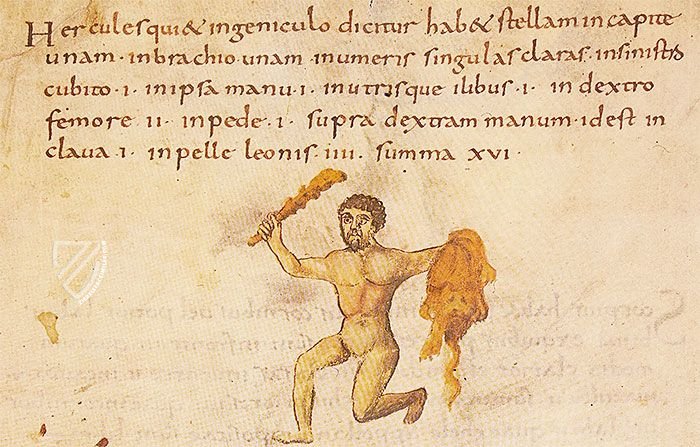 Hercules qui & ingeniculo dicitur hab& stellam in capite
unam· inbrachio unam· inumeris singulas claras· insinistro
cubito ·i· inipsa manu ·i· inutrisque ilibus ·i· in dextro
femore ii· inpede ·i· supra dextram manum· id est in
clava i· inpelle leonis· iiii· summa xvi·